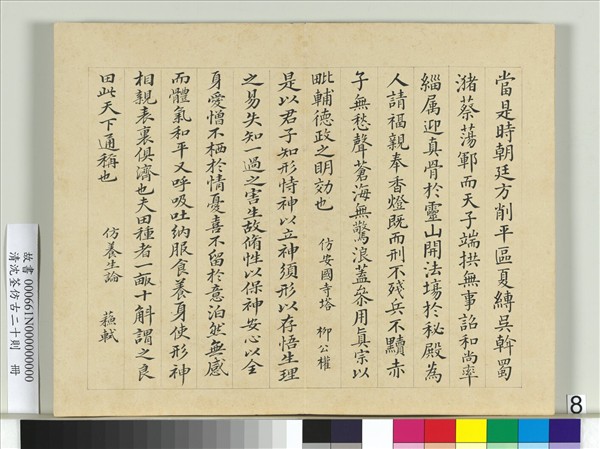 當是時朝廷方削平區夏縛吳斡蜀
潴蔡蕩鄆而天子端拱無事詔和尚率
緇属迎真骨於靈山開法塲於秘殿為
人請福親奉香燈既而刑不殘兵不黷赤
子無愁聲蒼海無驚浪蓋叅用真宗以
毗輔德政之明効也
仿安國寺塔 柳公權
是以君子知形恃神以立神須形以存悟生理
之易失知一過之害生故脩性以保神安心以全
身愛憎不栖於情憂喜不留於意泊然無感
而體氣和平又呼吸吐納服食養身使形神
相親表裏俱濟也夫田種者一畝十斛謂之良
田此天下通稱也
仿養生論 蘓軾
故書 000661N000000000
清沈荃仿古二十則 冊
8